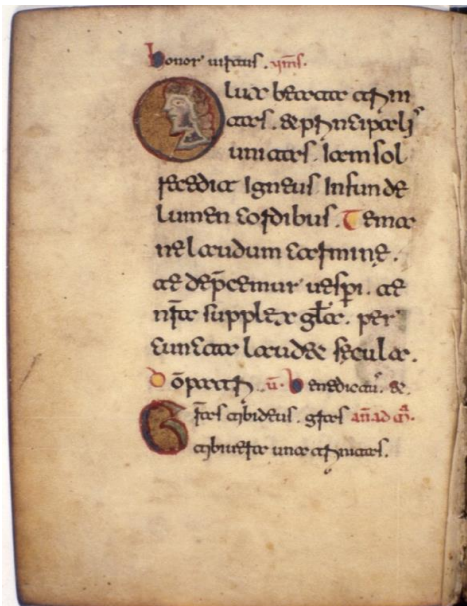 honor uirtus. ymns.
O lux beata trini
tas. & principalis
unitas. Iam sol
recedit Igneus Infunde
lumen cordibus. Te ma
ne laudum carmine.
te dep̄cemur uesp̄i. te
nr̄a supplex gl̄a. per
cuncta laudet secula.
Dō patri. v̄. Benedictus
Gr̄as tibi deus. gr̄as añ ad
tibi uera una trinitas.